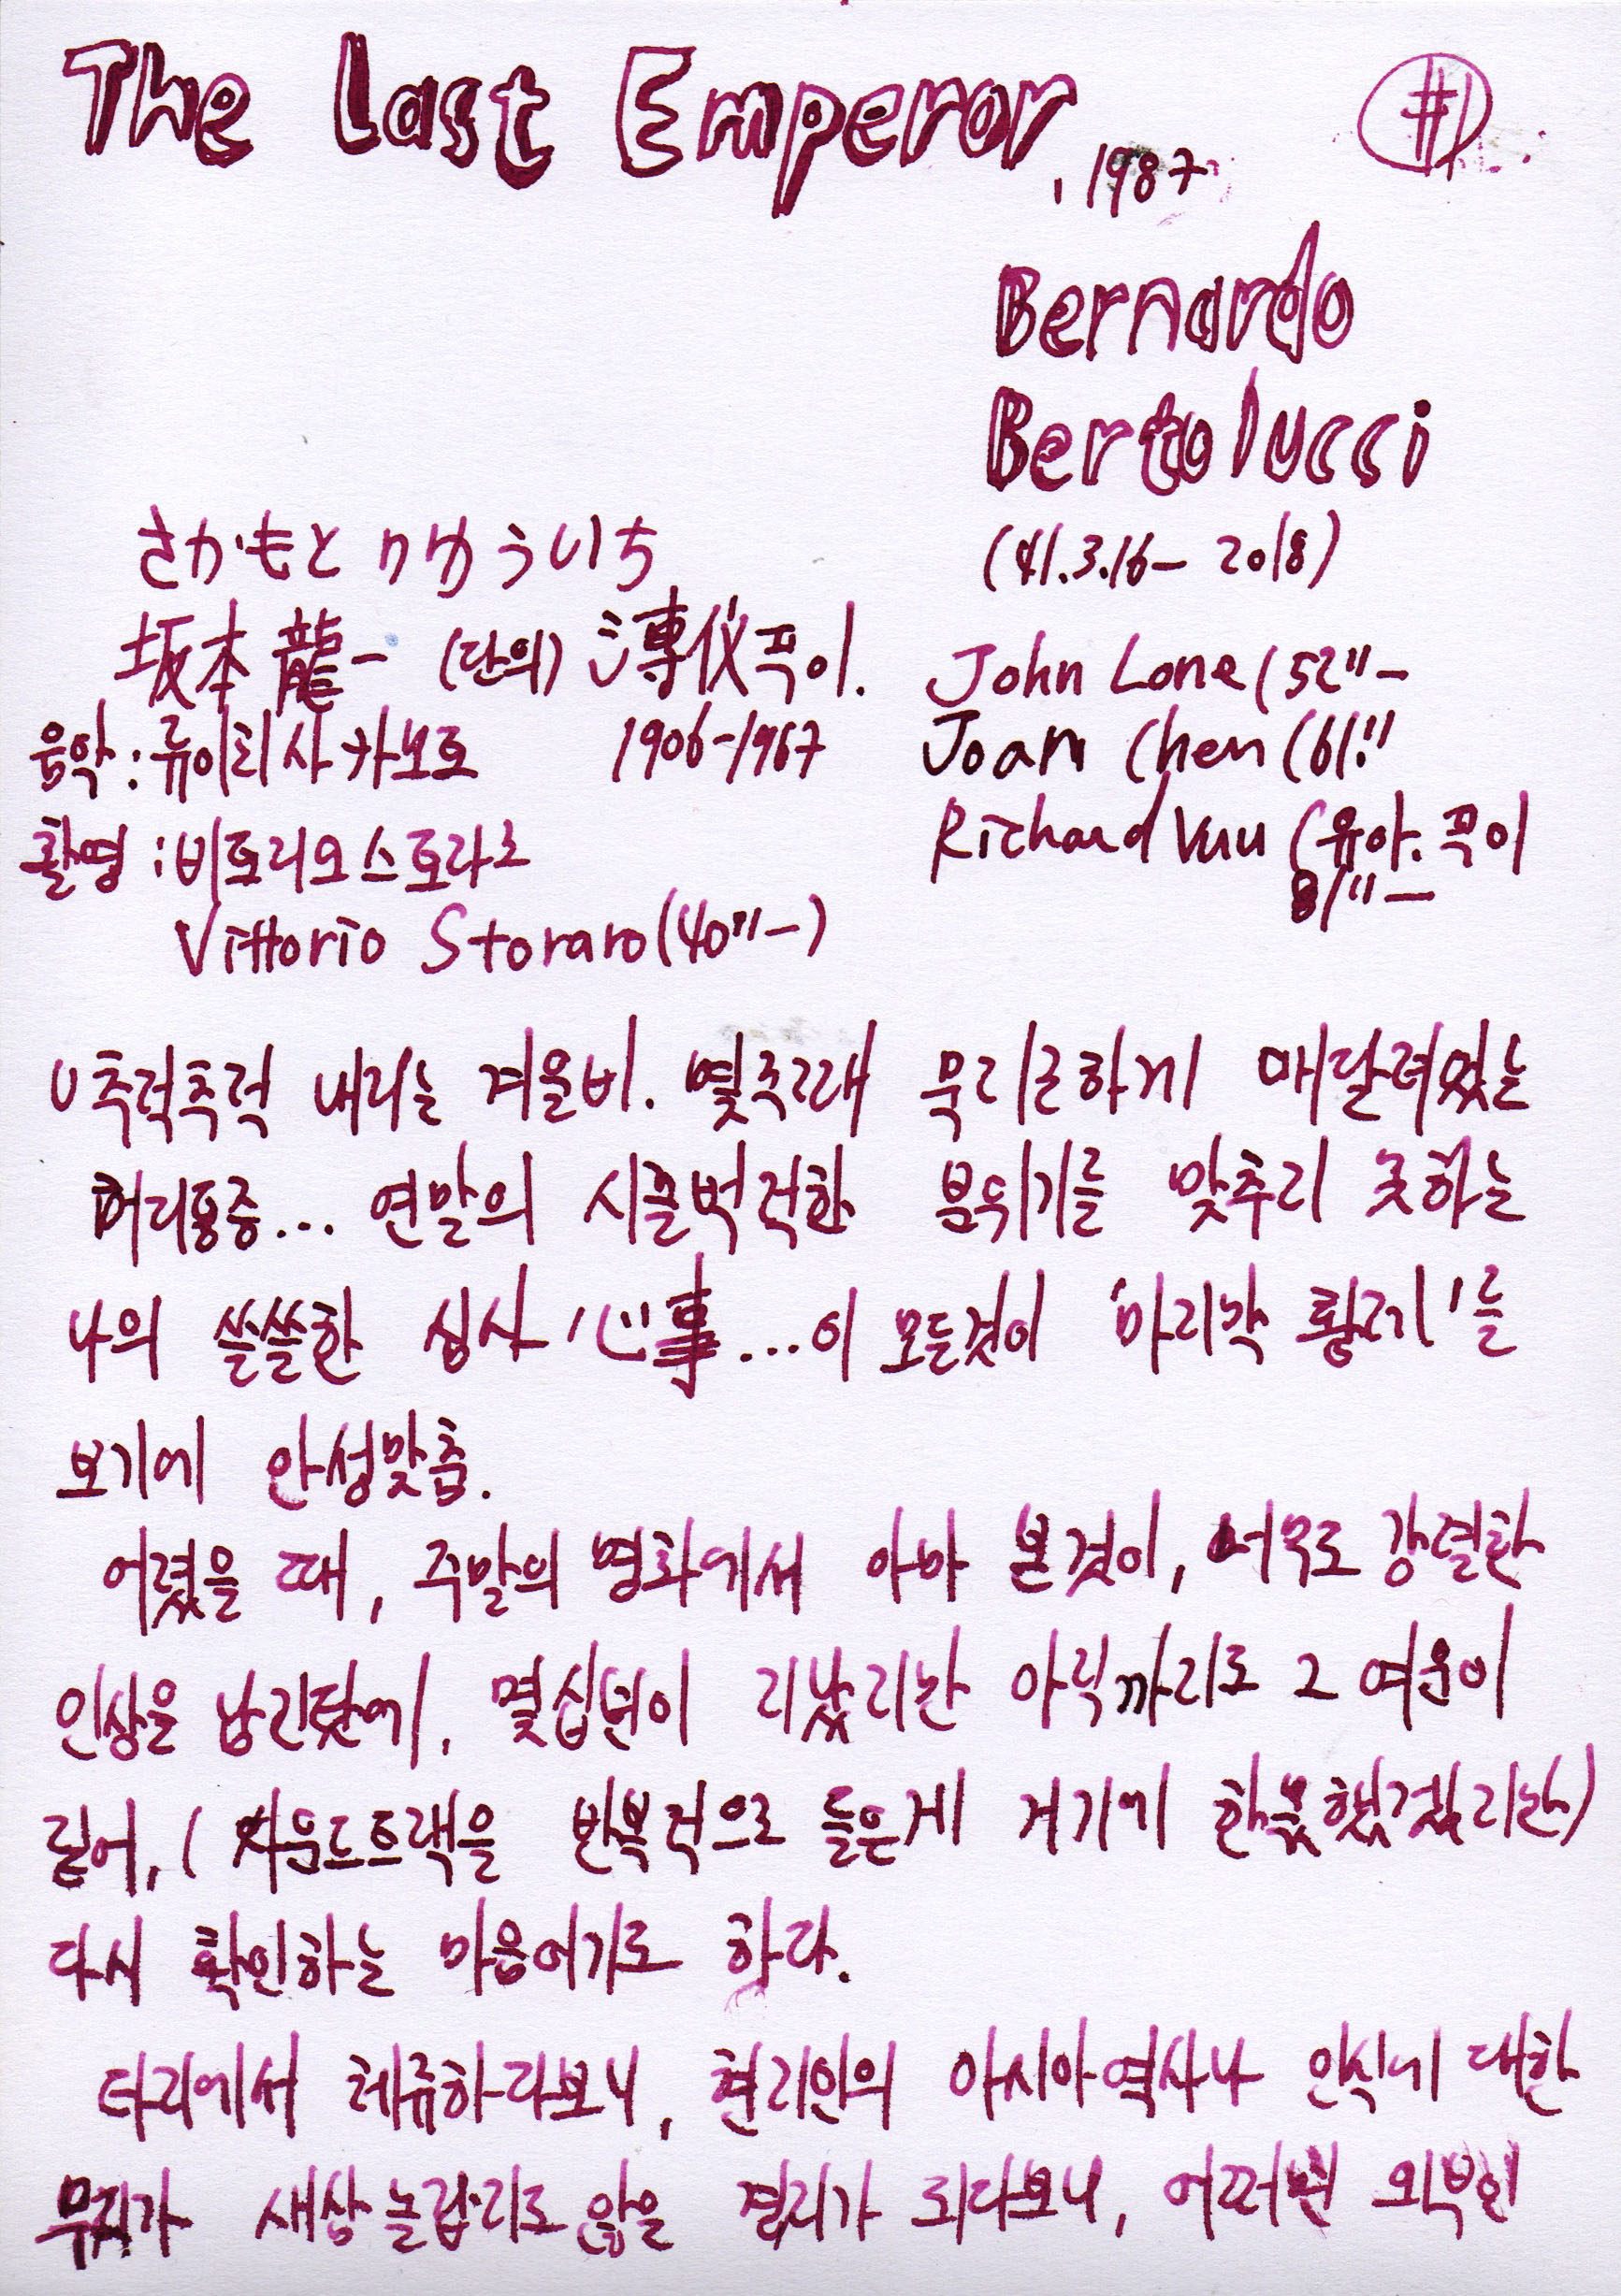 The Last Emperor, 1987
#1
Bernardo
Bertolucci
(41.3.16- 2018)
さかもと りゅういち
坂本龍一 (단의) 溥仪푸이.
1906-1967
음악:류이치사카모토
촬영:비토리오스토라로
Vittorio Storaro(40"-)
John Lone(52"-
Joan Chen(61!!
Richard Vuu(유아.푸이
81"-
추적추적 내리는 겨울비. 몇주째 묵지근하게 매달려있는
머리통증... 연말의 시끌벅적한 분위기를 맞추지 못하는
나의 쓸쓸한 심사 心事...이 모든것이 '마지막 황제'를
보기에 안성맞춤.
어렸을 때, 주말의 명화에서 아마 본것이, 너무도 강렬한
인상을 남긴탓에, 몇십년이 지났지만 아직까지도 그 여운이
길어, (사운드트랙을 반복적으로 들은게 거기에 한몫했겠지만)
다시 확인하는 마음여기로 하다.
타지에서 체류하다보니, 현지인의 아시아역사나 인식에 대한
무지가 새삼놀랍지도않을 경지가 되다보니, 어쩌면 외부인